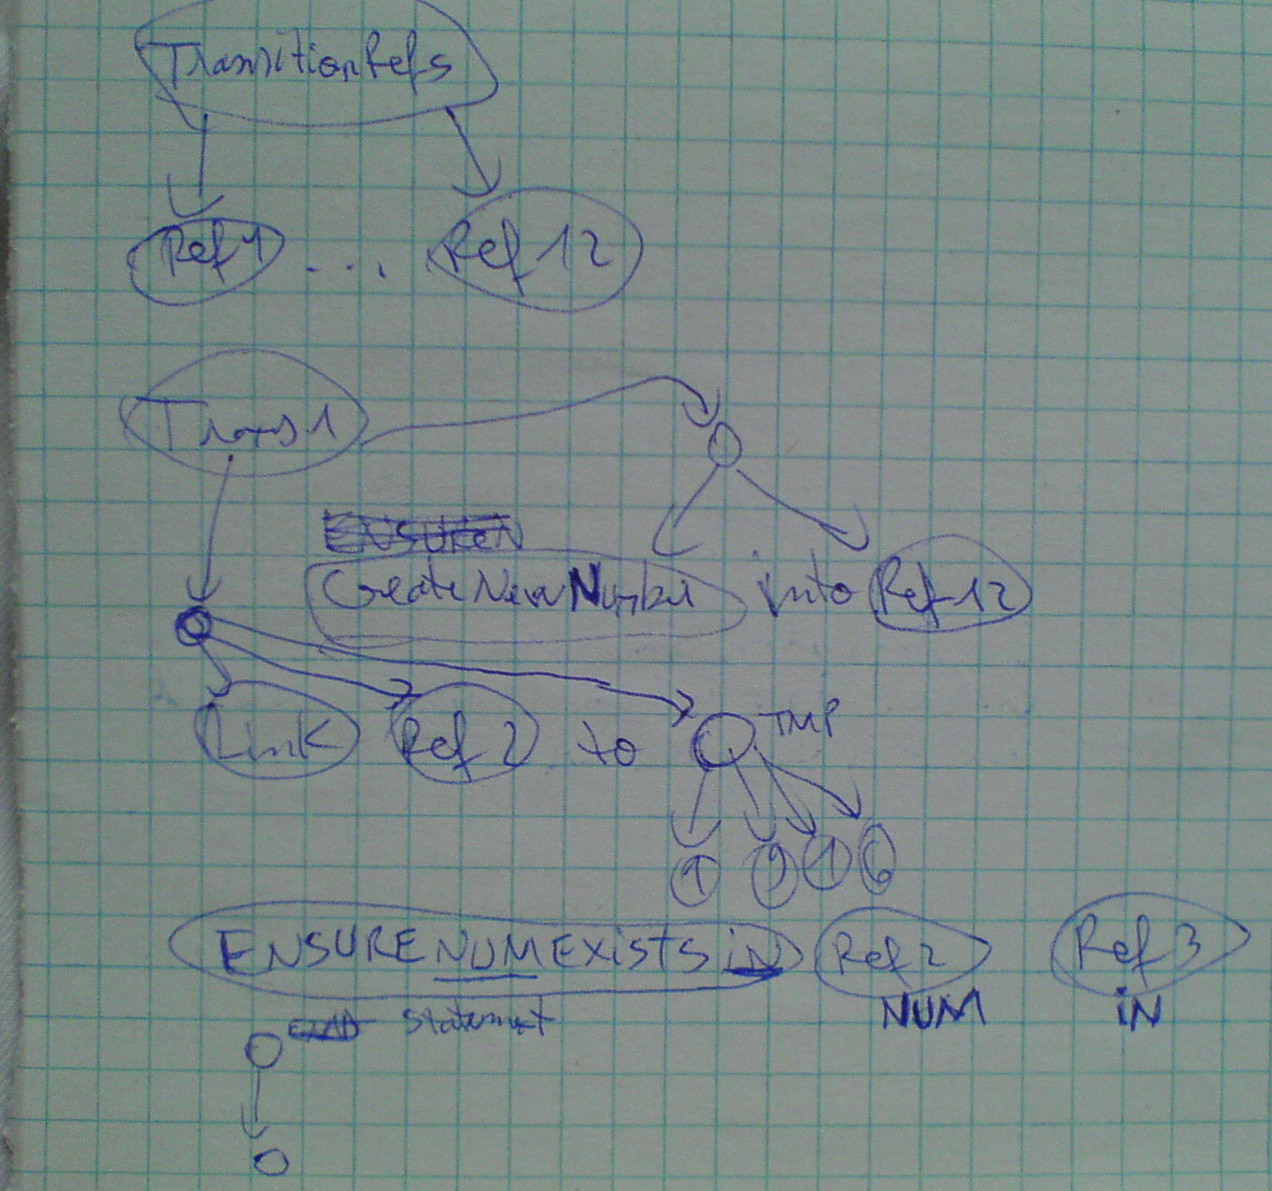 TransitionRefs
Ref 1 ... Ref 12
Trans 1
CreateNewNumber into Ref 12
Link Ref 2 to TMP
1 9 1 6
ENSURE NUM EXiSTS iN Ref 2 Ref 3
NUM iN
statement